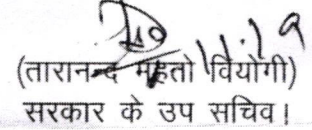 (तारानन्द महतो वियोगी)
सरकार के उप सचिव।